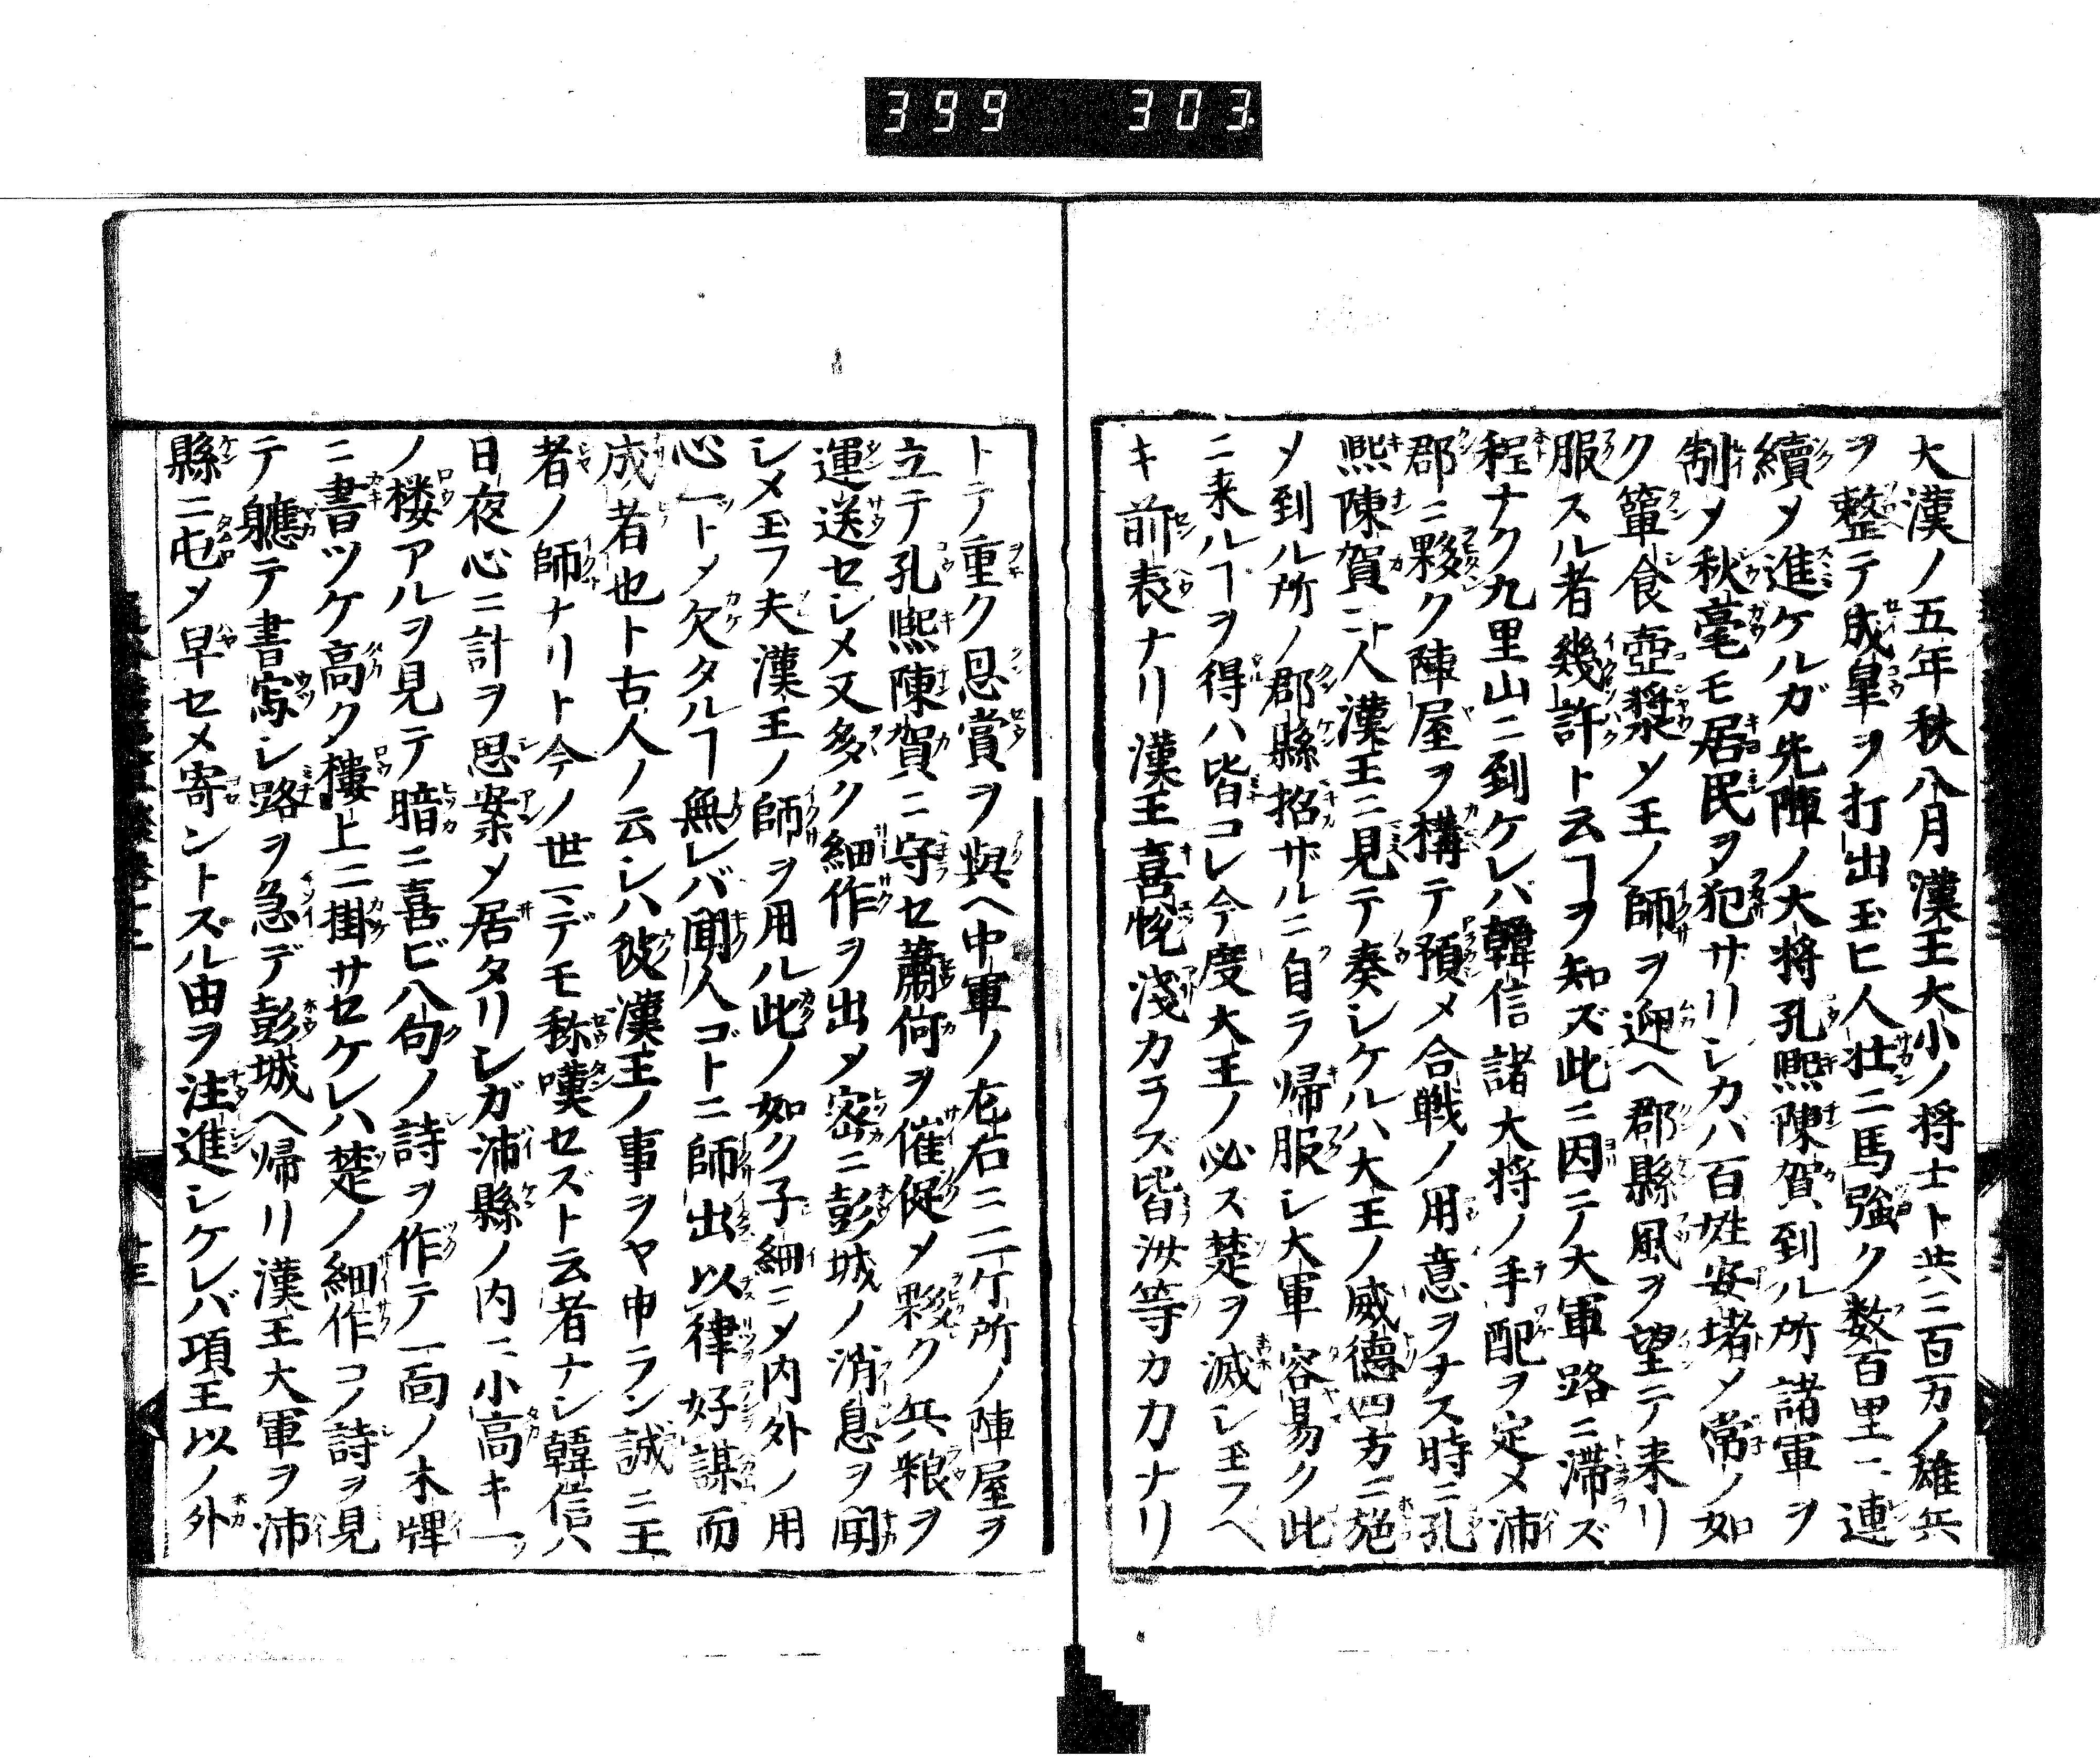 399 303
大漢ノ五年秋八月漢王大小ノ将士ト共ニ百万ノ雄兵
ヲ整テ成皐ヲ打出玉ヒ人壮ニ馬強ク数百里ニ連
續メ進ケルガ先陣ノ大将孔熈陳賀到ル所諸軍ヲ
制メ秋毫モ居民ヲ犯サリシカバ百姓安堵メ常ノ如
ク簞食壺漿ソ王ノ師ヲ迎ヘ郡縣風ヲ望テ来リ
服スル者幾許ト云ヿヲ知ズ此ニ因テ大軍路ニ滞ズ
程ナク九里山ニ到ケレバ韓信諸大将ノ手配ヲ定メ沛
郡ニ夥ク陣屋ヲ構テ預メ合戦ノ用意ヲナス時ニ孔
熈陳賀二人漢王ニ見テ奏シケルハ大王ノ威德四方ニ施
メ到ル所ノ郡縣招ザルニ自ラ帰服シ大軍容易ク此
ニ来ルヿヲ得ハ皆コレ今度大王ノ必ス楚ヲ滅シ玉フヘ
キ前表ナリ漢王喜悦淺カラズ皆汝等カ力ナリ
トテ重ク恩賞ヲ與ヘ中軍ノ左右ニ二ケ所ノ陣屋ヲ
立テ孔熈陳賀ニ守セ蕭何ヲ催促メ夥ク兵粮ヲ
運送セシメ又多ク細作ヲ出メ密ニ彭城ノ消息ヲ聞
シメ玉フ夫漢王ノ師ヲ用ル此ノ如ク子細ニメ内外ノ用
心一トメ欠タルヿ無レバ聞人ゴトニ師出以律好謀而
成者也ト古人ノ云シハ彼漢王ノ事ヲヤ申ラン誠ニ王
者ノ師ナリト今ノ世マデモ称嘆セズト云者ナシ韓信ハ
日夜心ニ計ヲ思案メ居タリシガ沛縣ノ内ニ小高キ一
ノ楼アルヲ見テ暗ニ喜ビ八句ノ詩ヲ作テ一面ノ木牌
ニ書ツケ高ク樓上ニ掛サセケレハ楚ノ細作コノ詩ヲ見
テ軈テ書寫シ路ヲ急デ彭城ヘ帰リ漢王大軍ヲ沛
縣ニ屯メ早セメ寄ントズル由ヲ注進シケレバ項王以ノ外